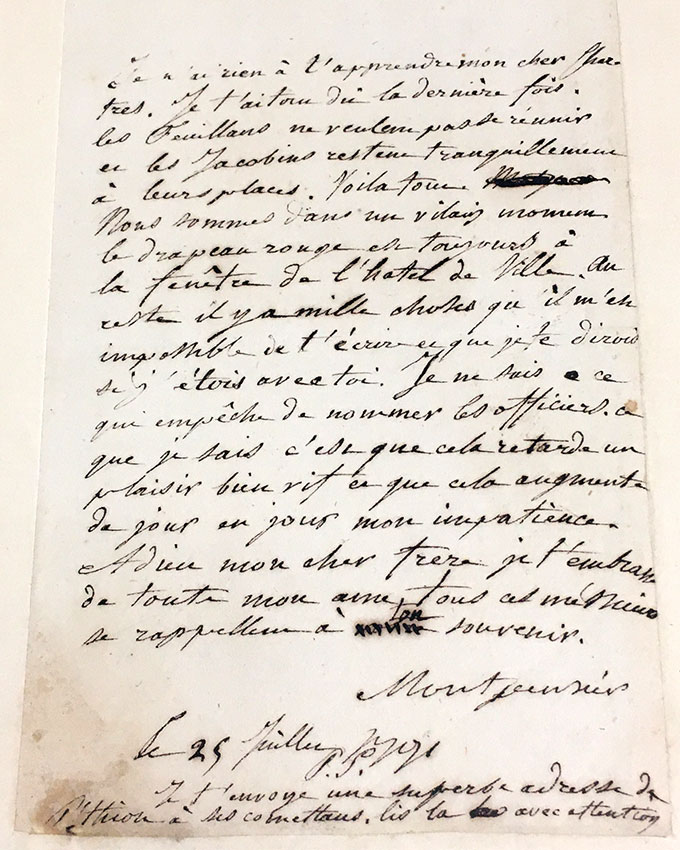 Je n'ai rien à t'apprendre mon cher Char
tres. Je t'ai tout dit la dernière fois.
les Feuillans ne veulent pas se réunir
et les Jacobins restent tranquillement
à leurs places. Voila tout
Nous sommes dans un vilain moment
le drapeau rouge est toujours à
la fenêtre de l'hotel de Ville. Au
reste il y a mille choses qu'il m'est
impossible de t'écrire et que je te dirois
si j'étois avec toi. Je ne sais ce
qui empêche de nommer les officiers. ce
que je sais c'est que cela retarde un
plaisir bien vif et que cela augmente
de jour en jour mon impatience.
Adieu mon cher frere je t'embrasse
de toute mon ame, tous ces messieurs
se rappellent à ton souvenir.
Montpensier
le 25 Juillet 1791
Je t'envoye une superbe adresse de
Péthion à ses comettans. lis la avec attention